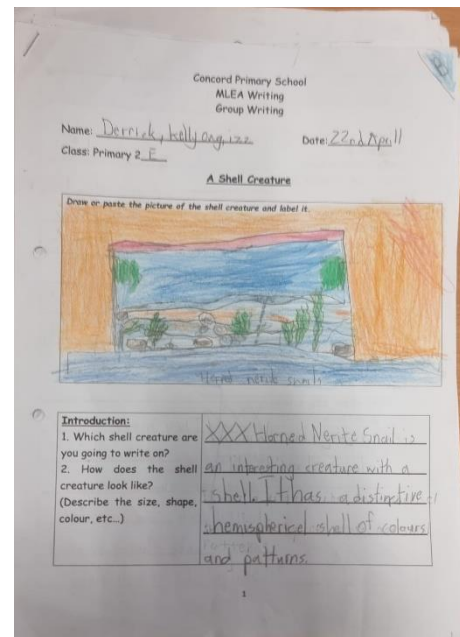 B
Concord Primary School
MLEA Writing
Group Writing
Name: Derrick, kelljong, izz
Date: 22nd April
Class: Primary 2 E
A Shell Creature
Draw or paste the picture of the shell creature and label it.
Horned nerite snails
Introduction:
1. Which shell creature are
you going to write on?
2. How does the shell
creature look like?
(Describe the size, shape,
colour, etc...)
XXX Horned Nerite Snail is
an interesting creature with a
shell. It has a distinctive
hemispherical shell of colours
and patturns.
1